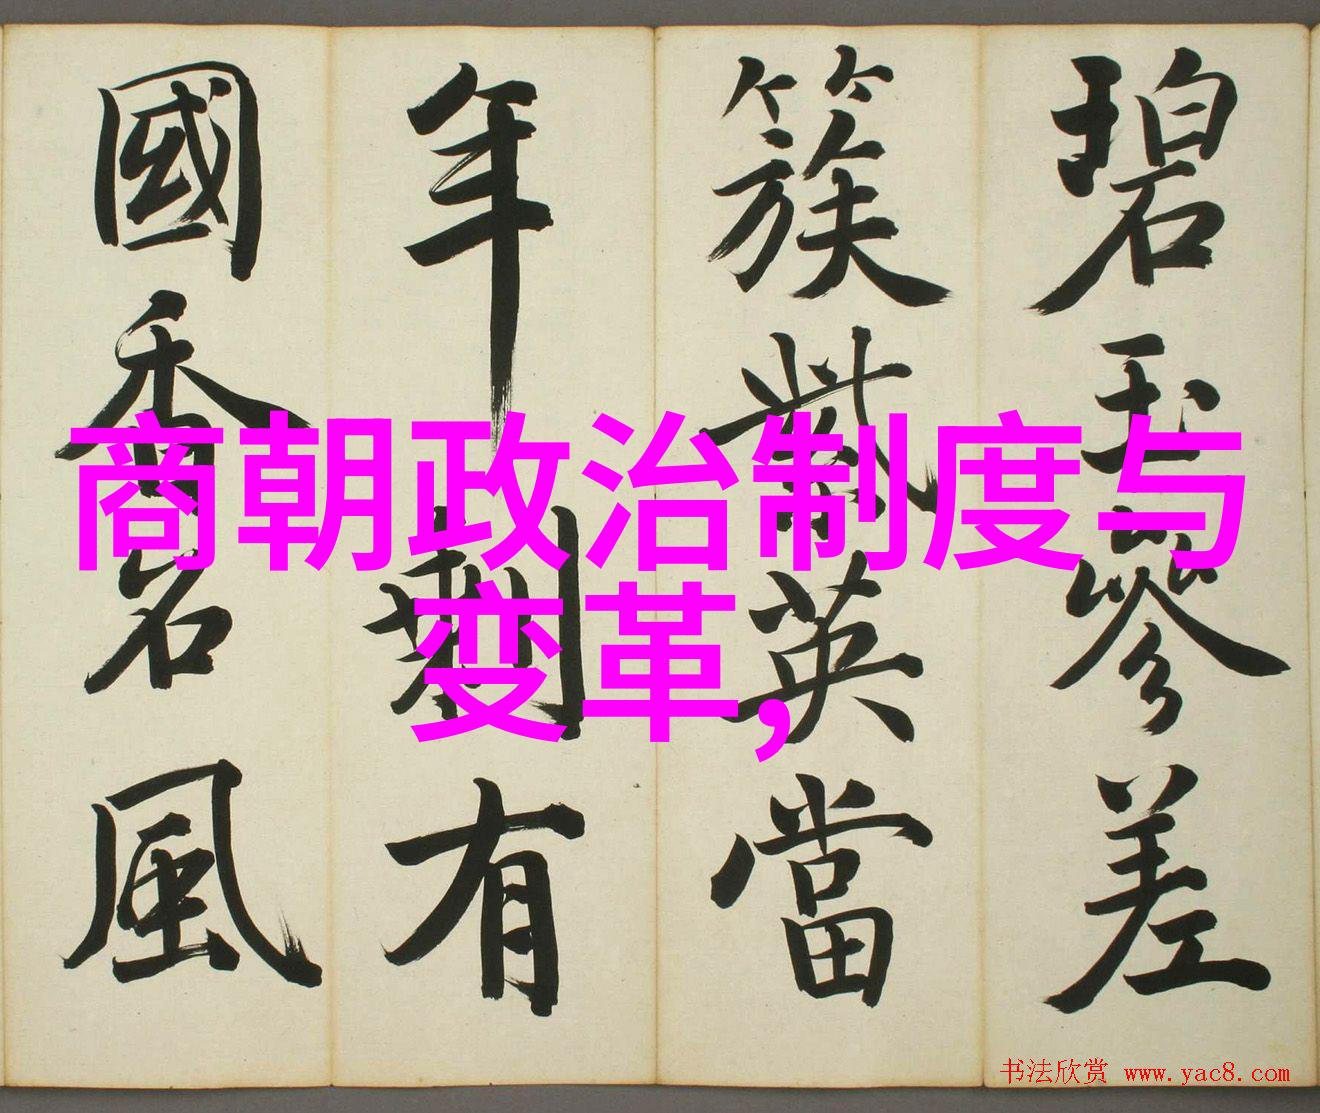 碧玉參差
簇紫英當
年剩有
國香名風
商朝政治制度与
变革,
书法欣赏 www.yac8.com